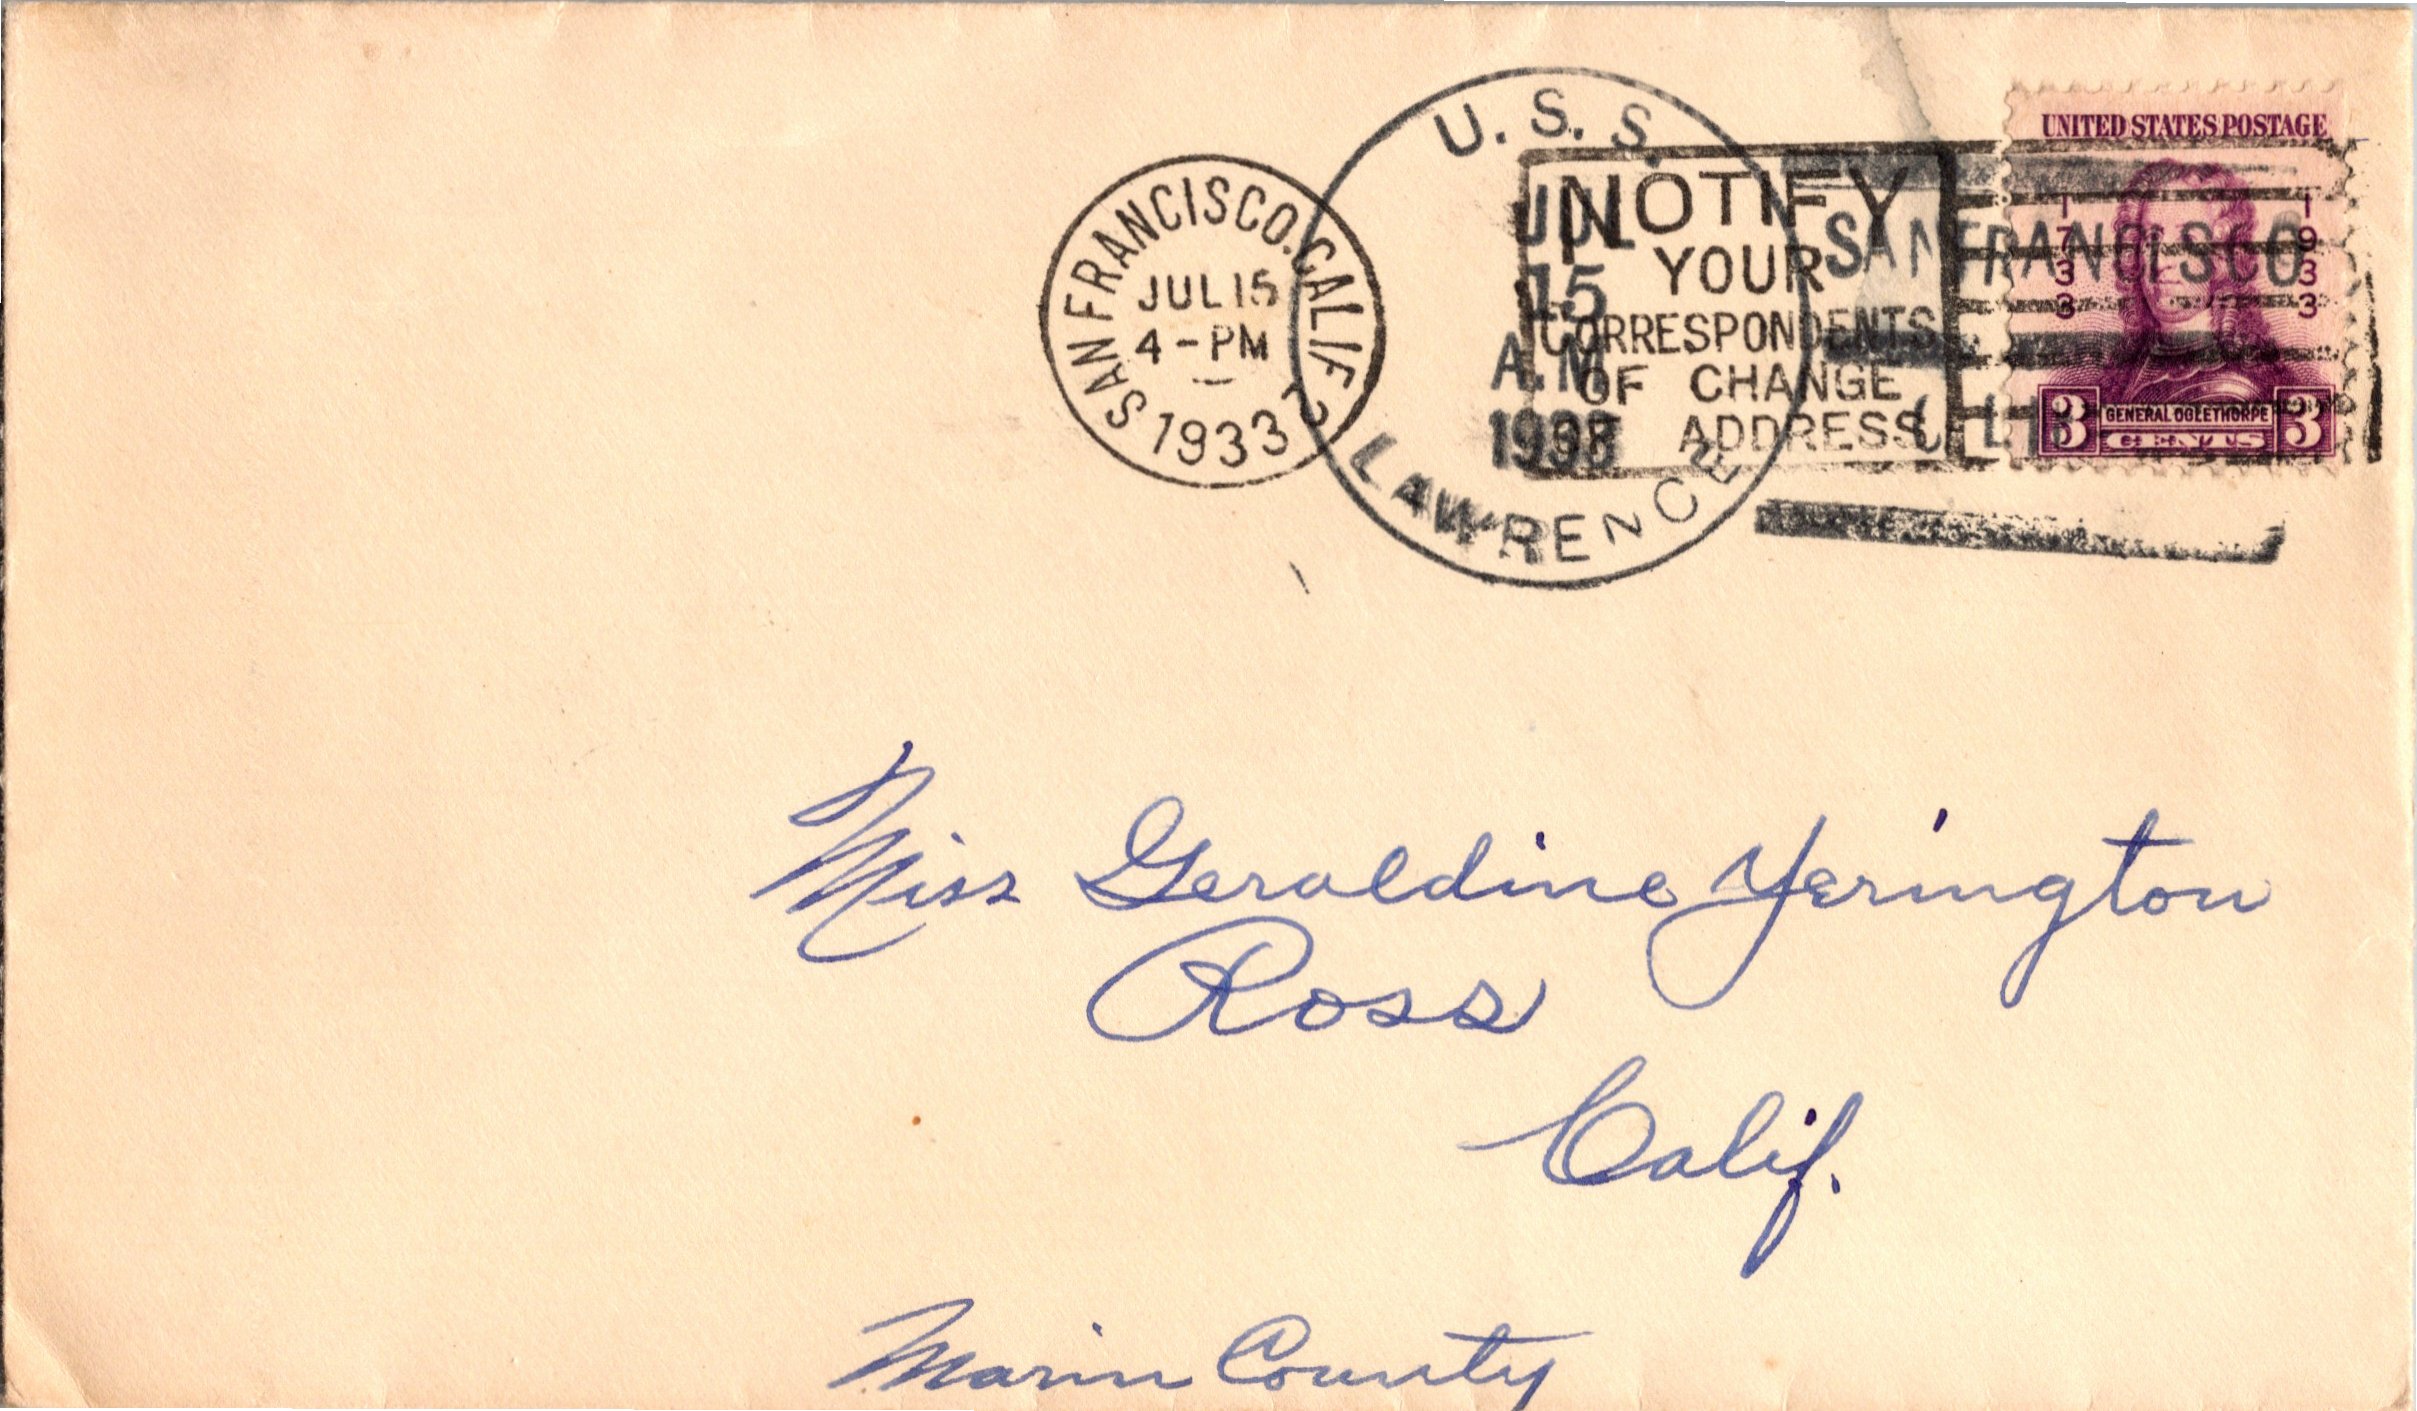 SAN FRANCISCO. CALIF. 2
JUL 15
4-PM
1933
U.S.S. LAWRENCE
JUL
15
A.M
1933
NOTIFY
YOUR
CORRESPONDENTS
OF CHANGE
OF ADDRESS
SAN FRANCISCO
UNITED STATES POSTAGE
1733
1933
GENERAL OGLETHORPE
3 CENTS 3
Miss Geraldine Yerington
Ross
Calif.
Marin County